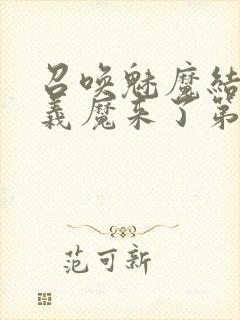 召唤魅魔结
义魔来了第
范可新